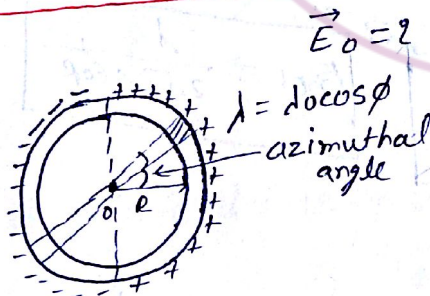 E⃗o = ?
λ = λocosφ
azimuthal
angle
O
R